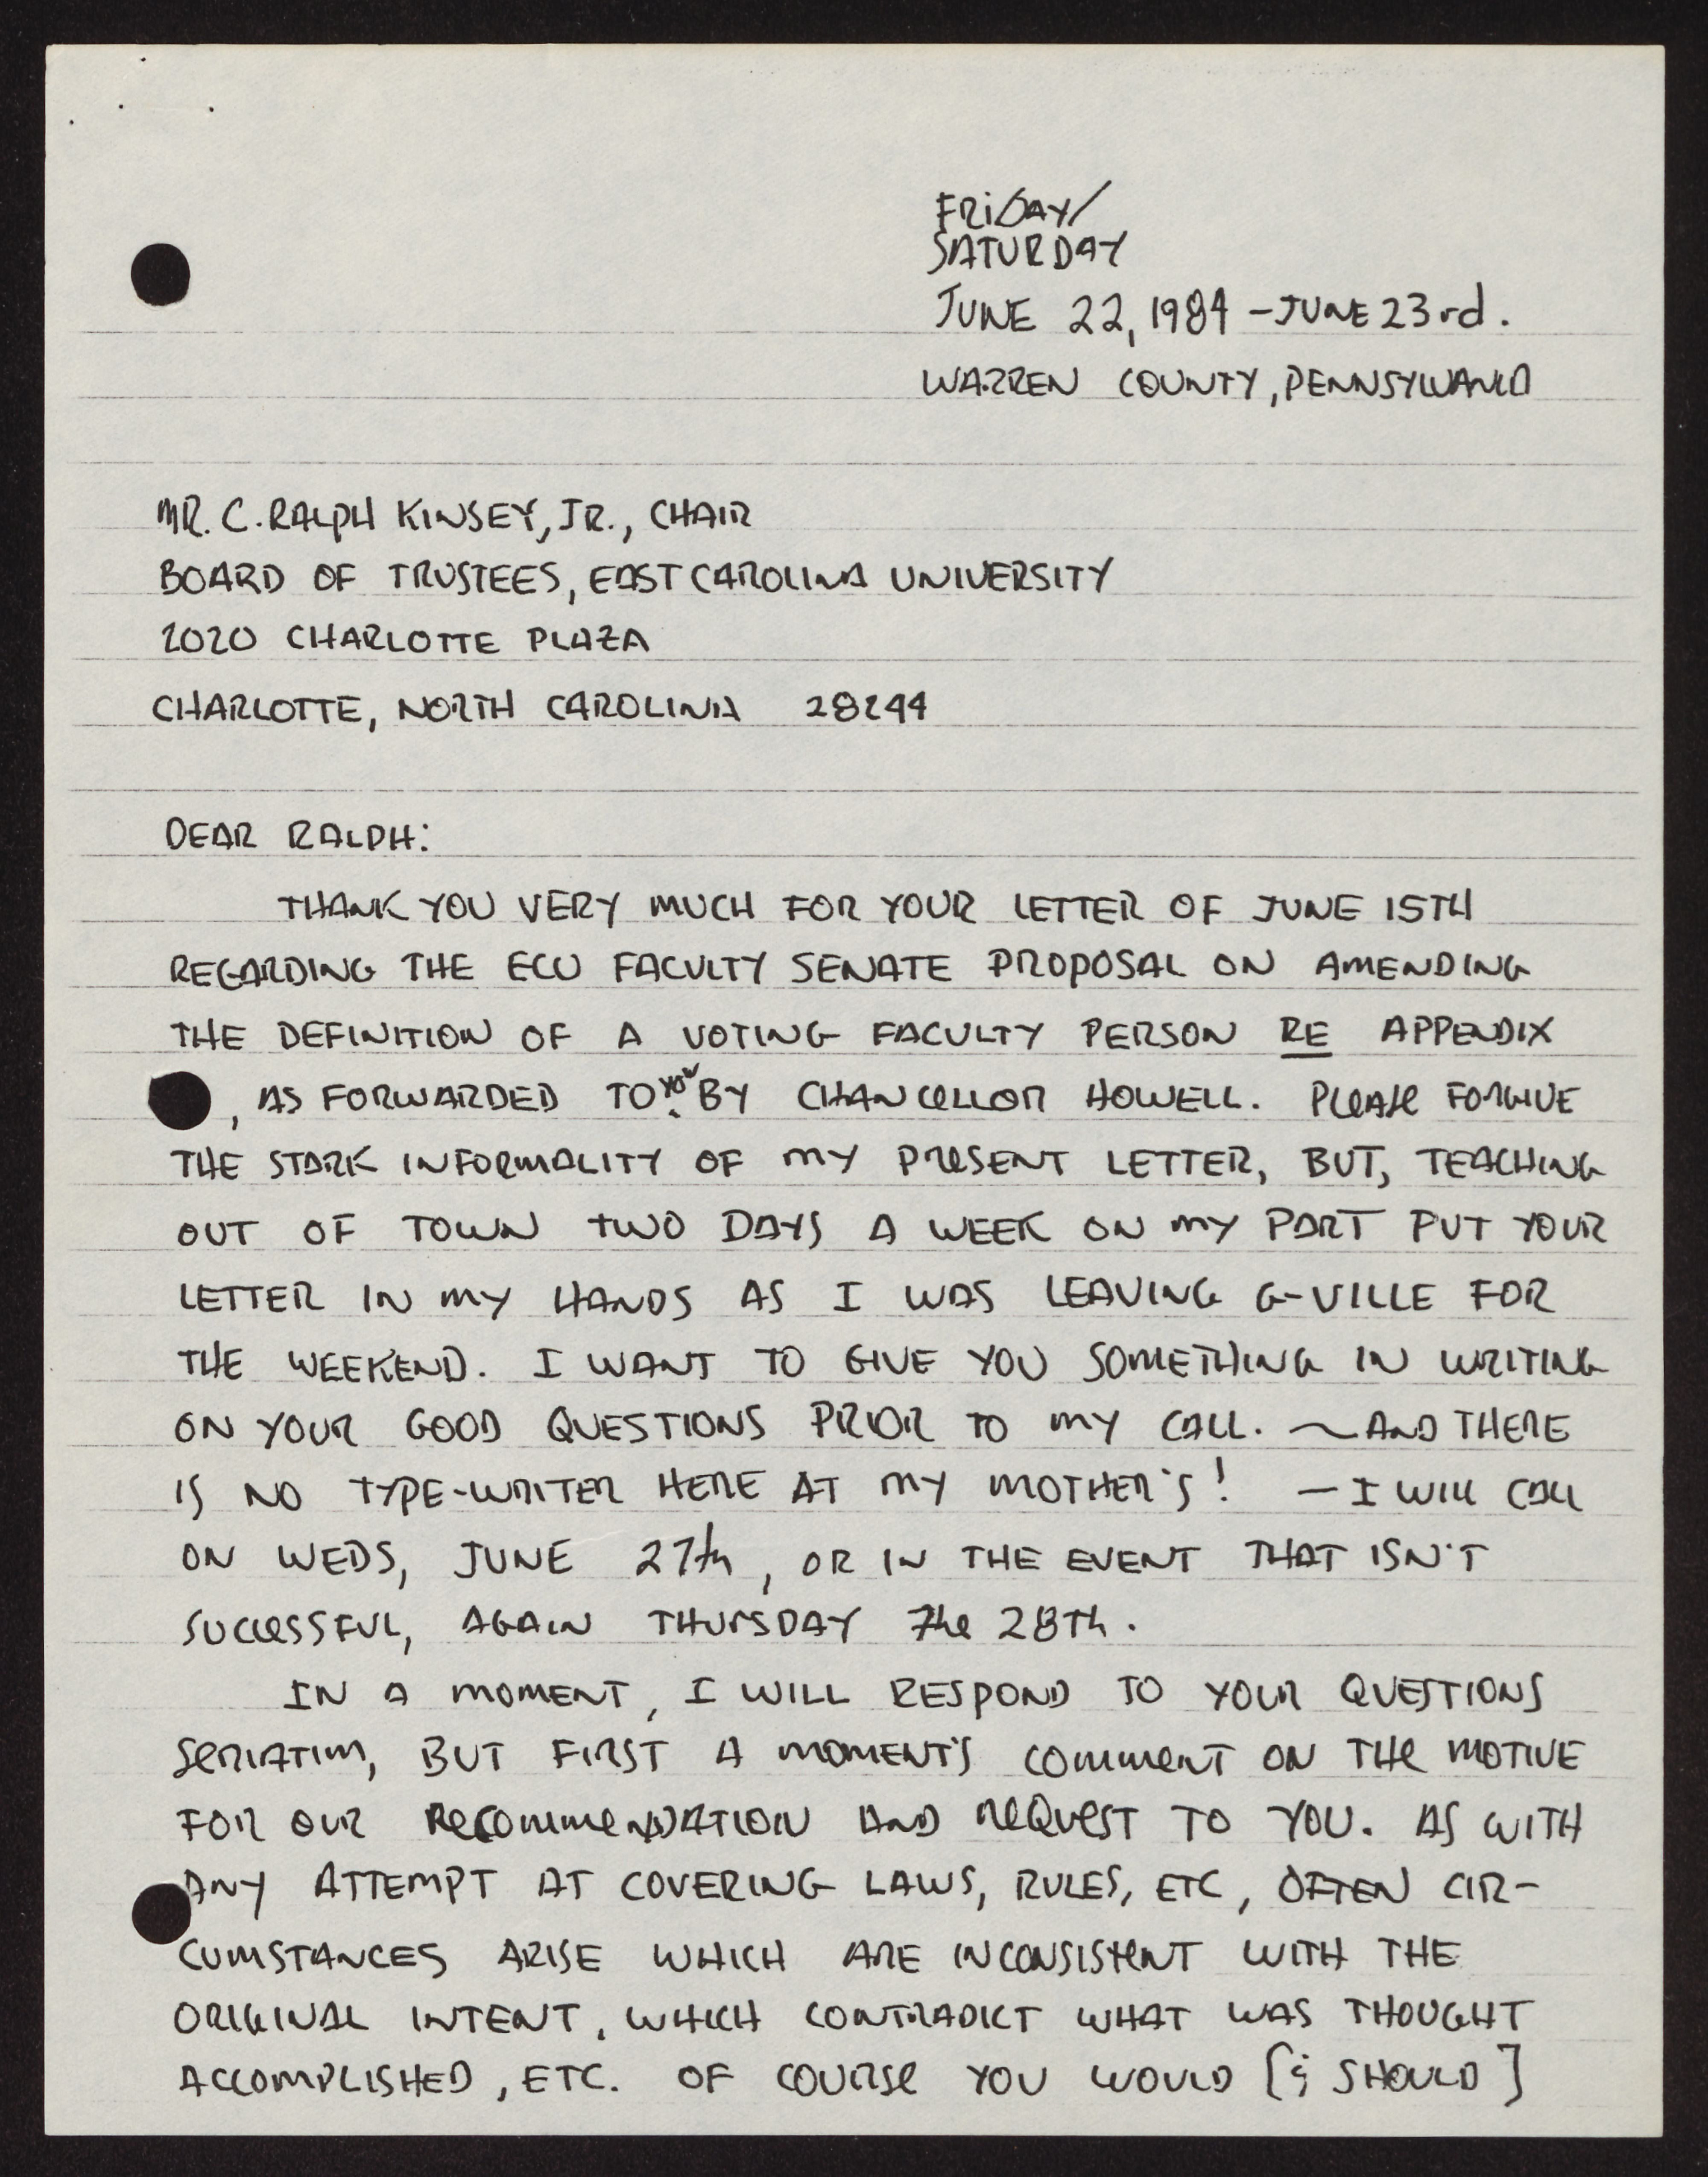 FRIDAY/
SATURDAY
JUNE 22, 1984 - JUNE 23rd.
WARREN COUNTY, PENNSYLVANIA
MR. C. RALPH KINSEY, JR., CHAIR
BOARD OF TRUSTEES, EAST CAROLINA UNIVERSITY
2020 CHARLOTTE PLAZA
CHARLOTTE, NORTH CAROLINA 28244
DEAR RALPH:
THANK YOU VERY MUCH FOR YOUR LETTER OF JUNE 15TH
REGARDING THE ECU FACULTY SENATE PROPOSAL ON AMENDING
THE DEFINITION OF A VOTING FACULTY PERSON RE APPENDIX
, AS FORWARDED TO YOU BY CHANCELLOR HOWELL. PLEASE FORGIVE
THE STARK INFORMALITY OF MY PRESENT LETTER, BUT, TEACHING
OUT OF TOWN TWO DAYS A WEEK ON MY PART PUT YOUR
LETTER IN MY HANDS AS I WAS LEAVING G-VILLE FOR
THE WEEKEND. I WANT TO GIVE YOU SOMETHING IN WRITING
ON YOUR GOOD QUESTIONS PRIOR TO MY CALL. ~ AND THERE
IS NO TYPE-WRITER HERE AT MY MOTHER'S! - I WILL CALL
ON WEDS, JUNE 27th, OR IN THE EVENT THAT ISN'T
SUCCESSFUL, AGAIN THURSDAY The 28Th.
IN A MOMENT, I WILL RESPOND TO YOUR QUESTIONS
SERIATIM, BUT FIRST A MOMENT'S COMMENT ON THE MOTIVE
FOR OUR RECOMMENDATION AND REQUEST TO YOU. AS WITH
ANY ATTEMPT AT COVERING LAWS, RULES, ETC, OFTEN CIR-
CUMSTANCES ARISE WHICH ARE INCONSISTENT WITH THE
ORIGINAL INTENT, WHICH CONTRADICT WHAT WAS THOUGHT
ACCOMPLISHED, ETC. OF COURSE YOU WOULD [& SHOULD]